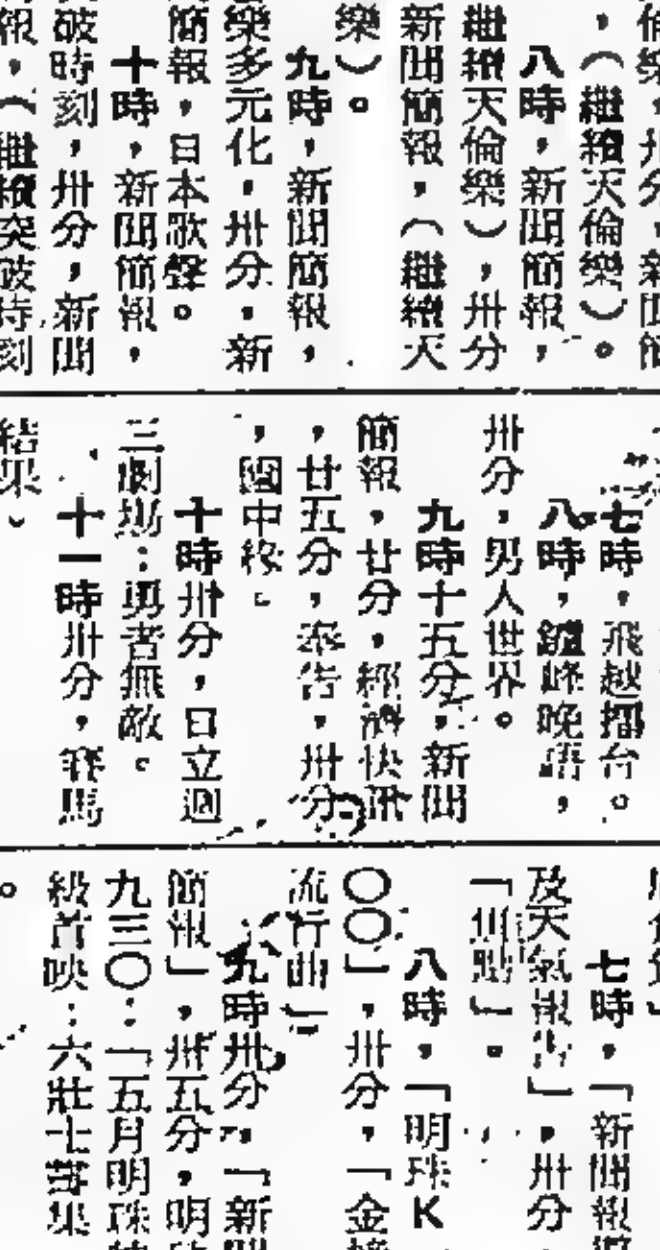 倫樂，卅分，新聞簡
，（繼續天倫樂）。
八時，新聞簡報，
繼續天倫樂），卅分
新聞簡報，（繼續天
樂）。
九時，新聞簡報，
樂多元化，卅分，新
簡報，日本歌聲。
十時，新聞簡報，
破時刻，卅分，新聞
報，（繼續突破時刻
七時，飛越擂台。
八時，鑪峰晚語，
卅分，男人世界。
九時十五分，新聞
簡報，廿分，經濟快訊
，廿五分，奉告，卅分
，國中移。
十時卅分，日立週
三劇場：勇者無敵。
十一時卅分，賽馬
結果。
七時，「新聞報
及天氣報告」，卅分
「仙點」。
八時，「明珠K
〇〇」，卅分，「金
流行曲」
九時卅分，「新聞
簡報」，卅五分，明
九三〇：「五月明珠
級首映：六壯士喋
。